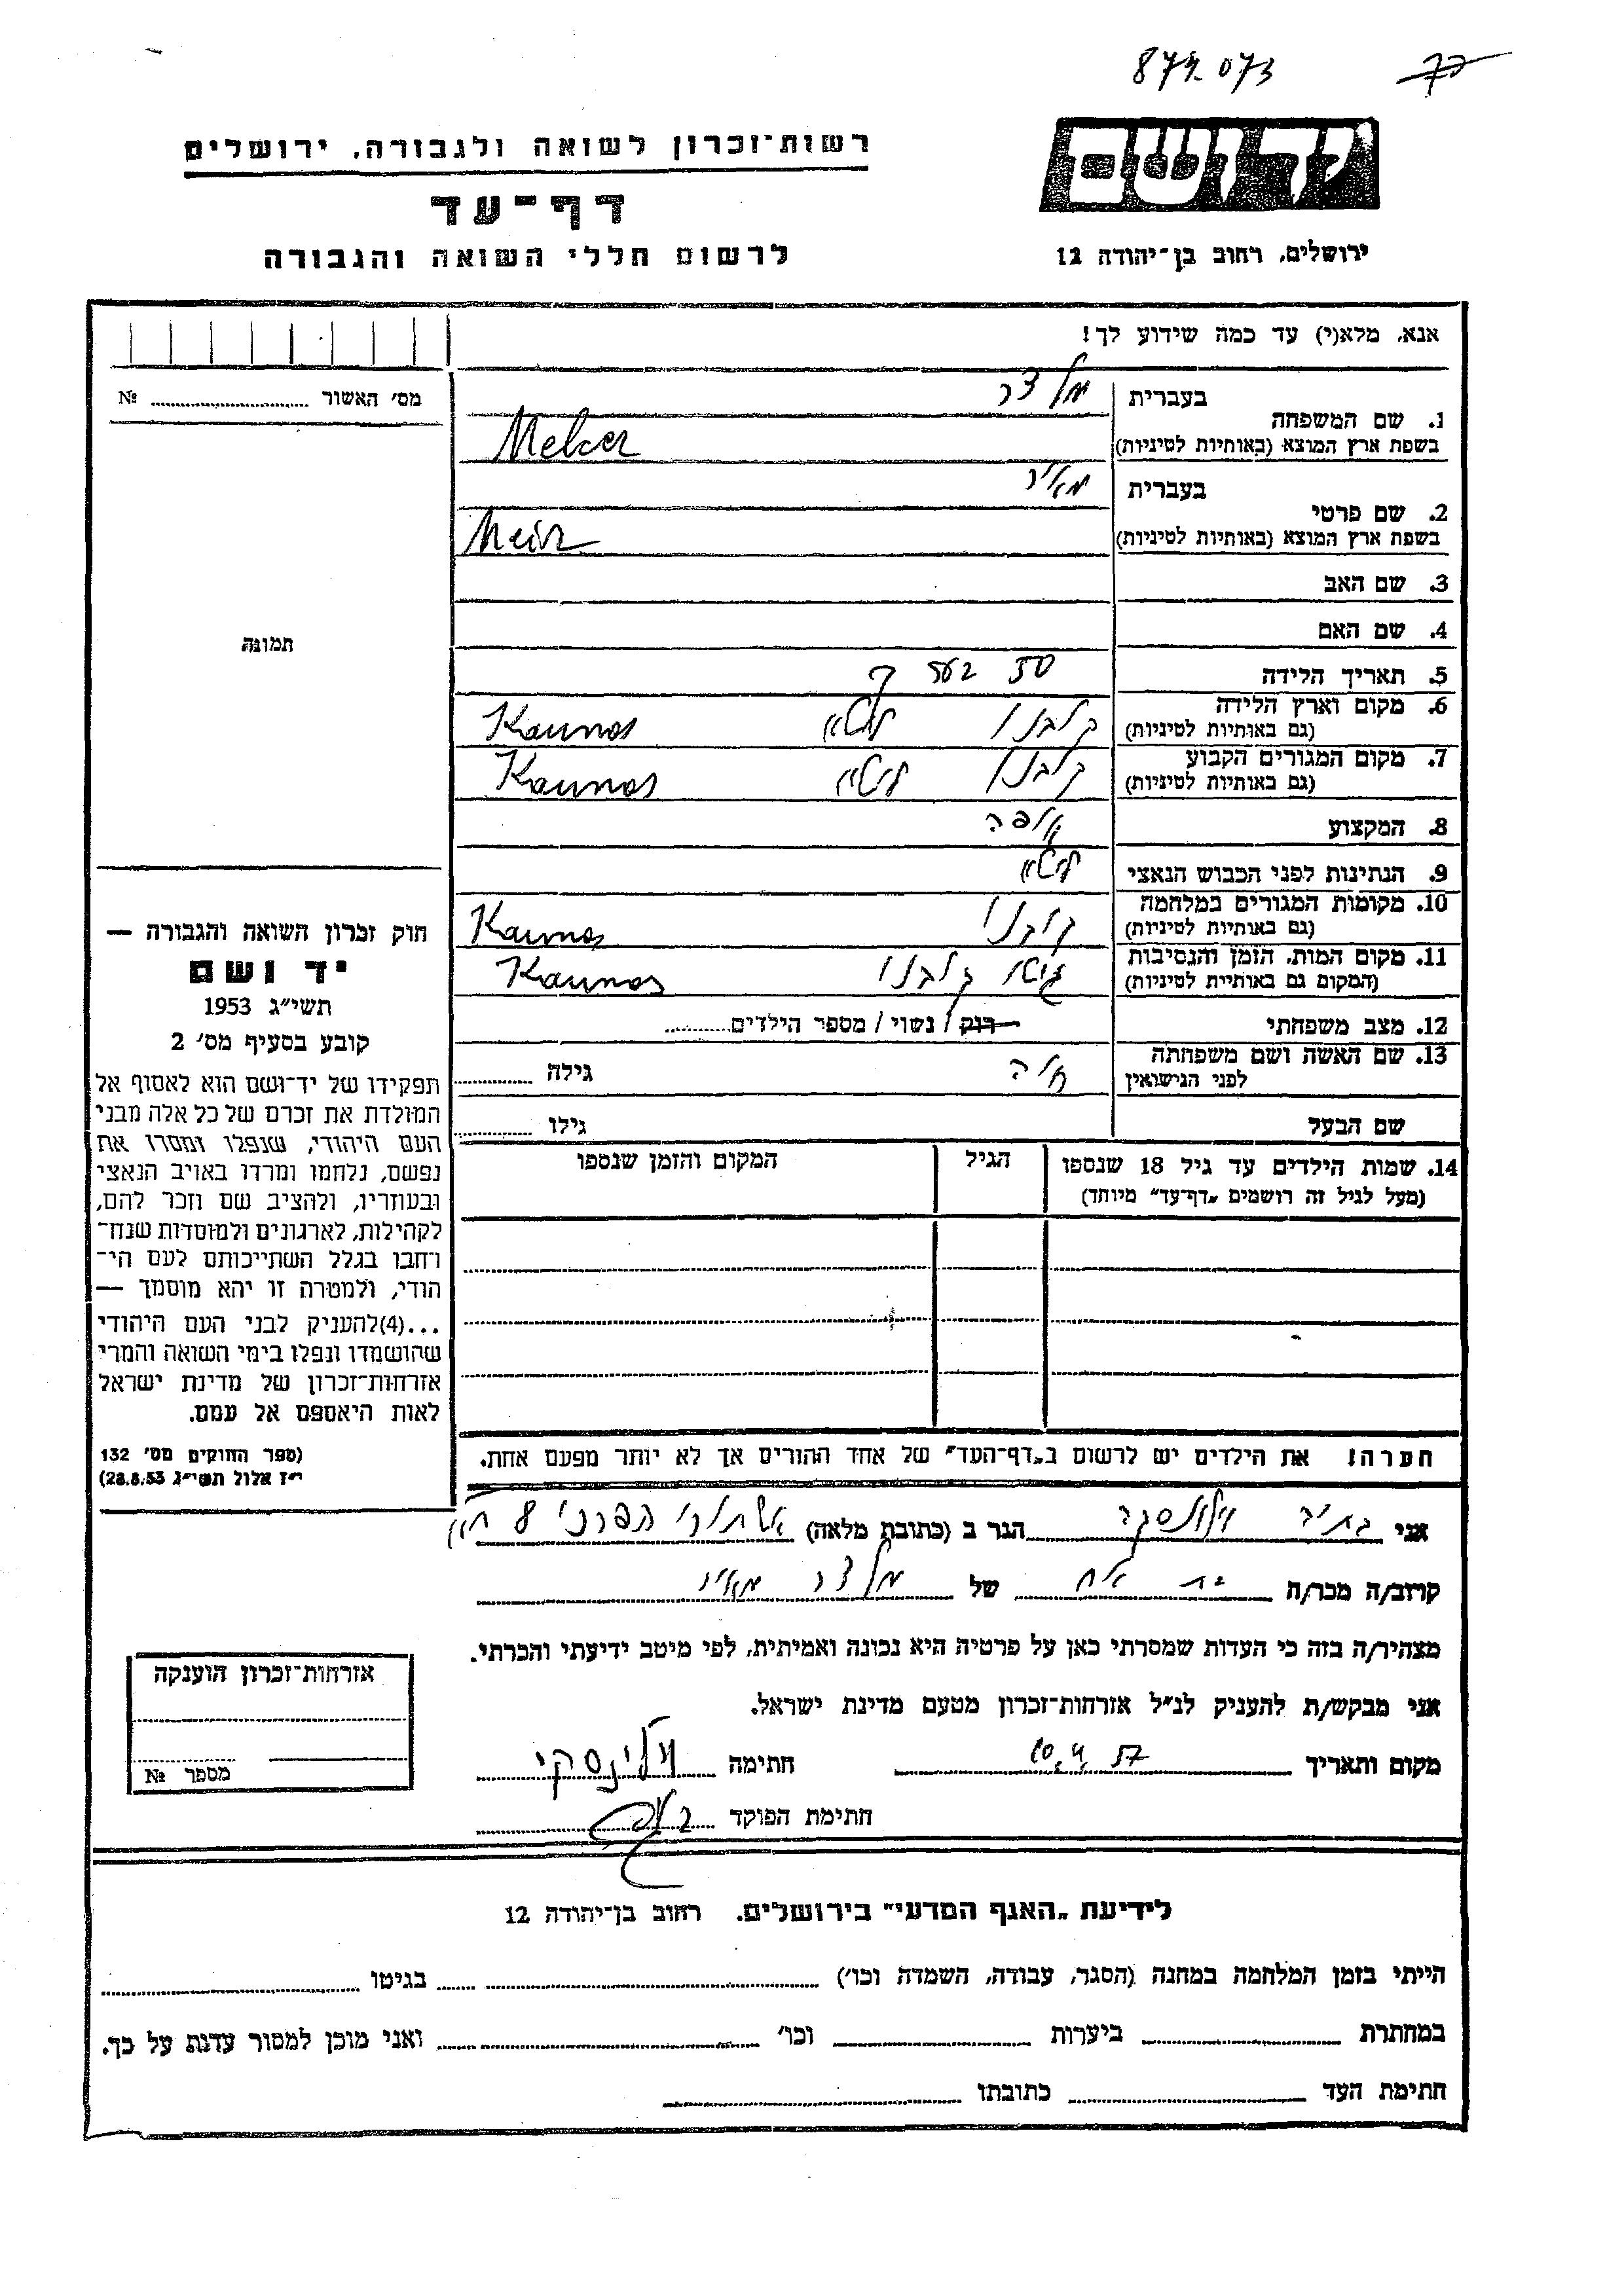 874.073
רשות־זכרון לשואה ולגבורה, ירושלים
דף־עד
לרשום חללי השואה והגבורה
יד ושם
ירושלים, רחוב בן־יהודה 12
אנא, מלא(י) עד כמה שידוע לך!
מס׳ האשור № 
1. שם המשפחה בעברית מלצר
בשפת ארץ המוצא (באותיות לטיניות) Melcer
2. שם פרטי בעברית מאיר
בשפת ארץ המוצא (באותיות לטיניות) Meir
3. שם האב
4. שם האם
תמונה
5. תאריך הלידה 50 בערך
6. מקום וארץ הלידה (גם באותיות לטיניות) קובנו ליטא Kaunas
7. מקום המגורים הקבוע (גם באותיות לטיניות) קובנו ליטא Kaunas
8. המקצוע אופה
9. הנתינות לפני הכבוש הנאצי ליטא
10. מקומות המגורים במלחמה (גם באותיות לטיניות) קובנו Kaunas
11. מקום המות, הזמן והנסיבות (המקום גם באותיית לטיניות) גיטו קובנו Kaunas
12. מצב משפחתי רווק / נשוי / מספר הילדים
13. שם האשה ושם משפחתה לפני הנישואין חיה גילה
שם הבעל גילו
14. שמות הילדים עד גיל 18 שנספו הגיל המקום והזמן שנספו
(מעל לגיל זה רושמים „דף־עד” מיוחד)
הערה! את הילדים יש לרשום ב„דף־העד” של אחד ההורים אך לא יותר מפעם אחת.
חוק זכרון השואה והגבורה —
יד ושם
תשי״ג 1953
קובע בסעיף מס׳ 2
תפקידו של יד־ושם הוא לאסוף אל
המולדת את זכרם של כל אלה מבני
העם היהודי, שנפלו ומסרו את
נפשם, נלחמו ומרדו באויב הנאצי
ובעוזריו, ולהציב שם וזכר להם,
לקהילות, לארגונים ולמוסדות שנח־
רחבו בגלל השתייכותם לעם הי־
הודי, ולמטרה זו יהא מוסמך —
...(4)להעניק לבני העם היהודי
שהושמדו ונפלו בימי השואה והמרי
אזרחות־זכרון של מדינת ישראל
לאות היאספם אל עמם.
(ספר החוקים מס׳ 132
י״ז אלול תשי״ג 28.8.53)
אני הגר ב (כתובת מלאה) אשתורי הפרחי 8
קרוב/ה מכר/ה בת אח של מלצר מאיר
מצהיר/ה בזה כי העדות שמסרתי כאן על פרטיה היא נכונה ואמיתית, לפי מיטב ידיעתי והכרתי.
אני מבקש/ת להעניק לנ״ל אזרחות־זכרון מטעם מדינת ישראל.
מקום ותאריך 10.4.57 חתימה
חתימת הפוקד
אזרחות־זכרון הוענקה
מספר №
לידיעת „האגף המדעי” בירושלים, רחוב בן־יהודה 12
הייתי בזמן המלחמה במחנה (הסגר, עבודה, השמדה וכו׳) בגיטו
במחתרת ביערות וכו׳ ואני מוכן למסור עדות על כך.
חתימת העד כתובתו